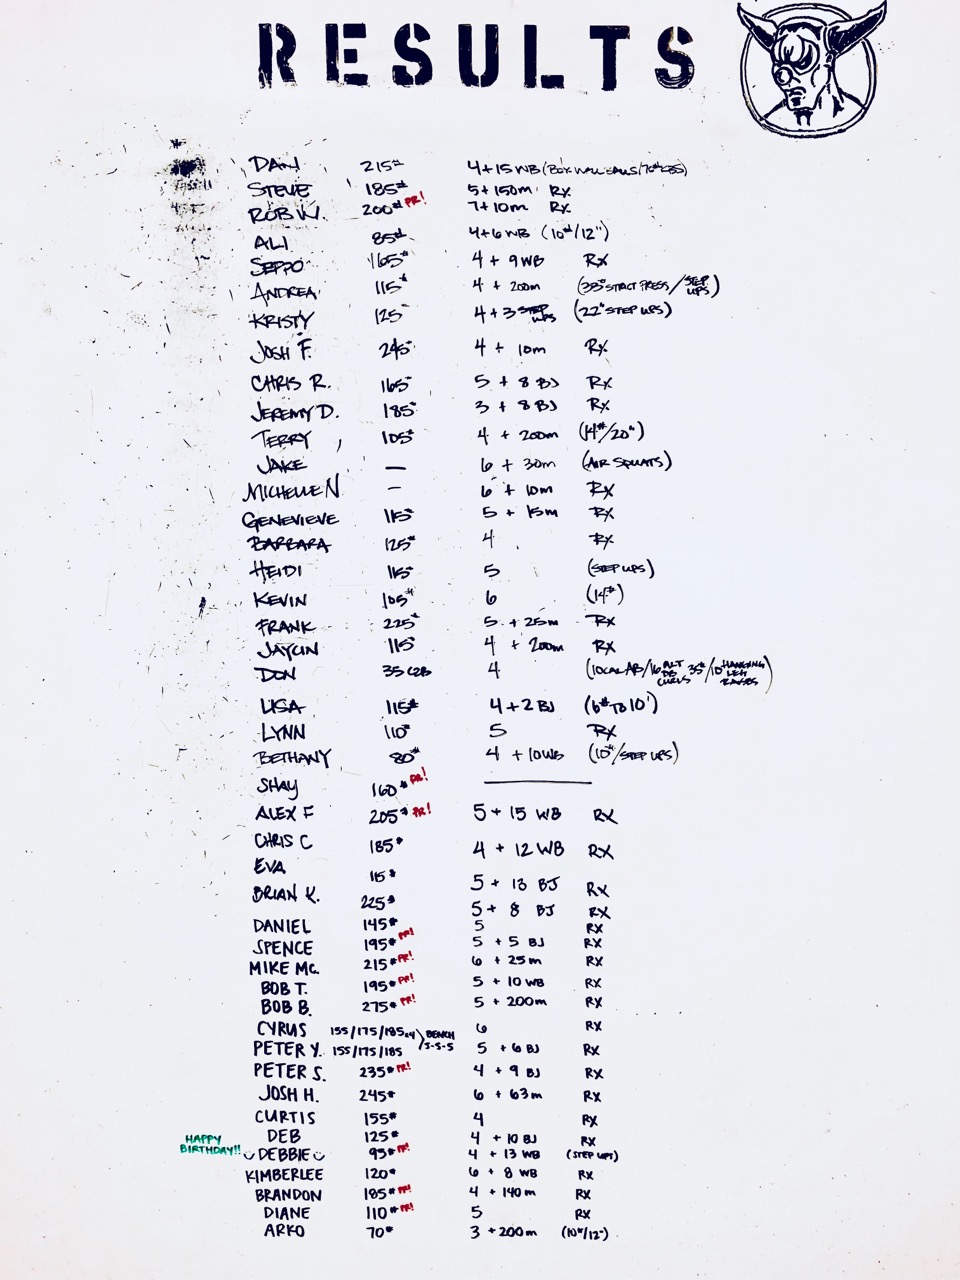 RESULTS
DAN 215# 4+15 WB (BOX WALL BALLS/70#DBS)
STEVE 185# 5+150m Rx
ROB W. 200# PR! 7+10m Rx
ALI 85# 4+6 WB (10#/12")
SEPPO 165# 4 + 9 WB Rx
ANDREA 115# 4 + 200m (35# STRICT PRESS/STEP UPS)
KRISTY 125# 4+3 STEP UPS (22" STEP UPS)
JOSH F. 245# 4 + 10m Rx
CHRIS R. 165# 5 + 8 BJ Rx
JEREMY D. 185# 3 + 8 BJ Rx
TERRY 105# 4 + 200m (14#/20")
JAKE — 6 + 30m (AIR SQUATS)
MICHELLE N — 6 + 10m Rx
GENEVIEVE 115# 5 + 15m Rx
BARBARA 125# 4 Rx
HEIDI 115# 5 (STEP UPS)
KEVIN 105# 6 (14#)
FRANK 225# 5 + 25m Rx
JAYCIN 115# 4 + 200m Rx
DON 35 C2B 4 (10CAL AB/16 ALT DB CURLS 35#/10 HANGING LEG RAISES)
LISA 115# 4+2 BJ (6# TO 10')
LYNN 110# 5 Rx
BETHANY 80# 4 + 10 WB (10#/STEP UPS)
SHAY 160# PR! ———
ALEX F 205# PR! 5 + 15 WB Rx
CHRIS C 185# 4 + 12 WB Rx
EVA 115# 5 + 13 BJ Rx
BRIAN K. 225# 5 + 8 BJ Rx
DANIEL 145# 5 Rx
SPENCE 195# PR! 5 + 5 BJ Rx
MIKE MC. 215# PR! 6 + 25m Rx
BOB T. 195# PR! 5 + 10 WB Rx
BOB B. 275# PR! 5 + 200m Rx
CYRUS 155/175/185x4 BENCH 6 Rx
PETER Y. 155/175/185 5-5-5 5 + 6 BJ Rx
PETER S. 235# PR! 4 + 9 BJ Rx
JOSH H. 245# 6 + 63m Rx
CURTIS 155# 4 Rx
DEB 125# 4 + 10 BJ Rx
HAPPY BIRTHDAY!! DEBBIE 95# PR! 4 + 13 WB (STEP UPS)
KIMBERLEE 120# 6 + 8 WB Rx
BRANDON 185# PR! 4 + 140m Rx
DIANE 110# PR! 5 Rx
ARKO 70# 3 + 200m (10#/12")